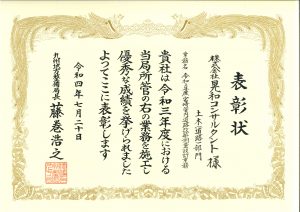 表彰状
株式会社 晃和コンサルタント 様
土木（道路）部門
貴社は令和三年度における
当局所管の右の業務を施工し
優秀な成績を挙げられました
よってここに表彰します
令和四年七月二十日
九州地方整備局長 藤巻浩之